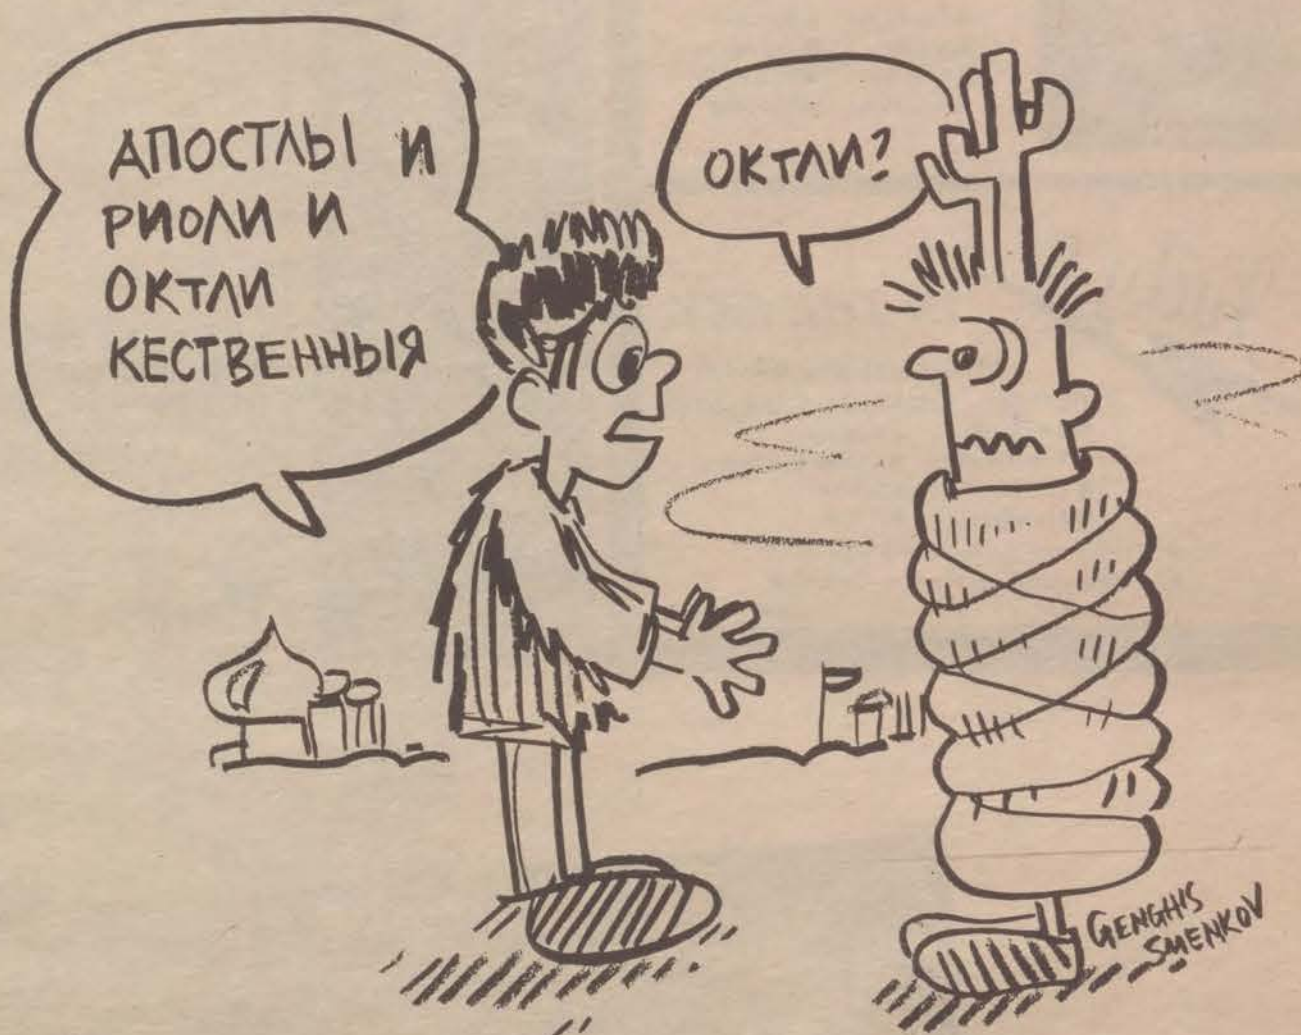 АПОСТЛЫ И
РИОЛИ И
ОКТЛИ
КЕСТВЕННЫЯ
ОКТЛИ?
GENGHIS
SMENKOV